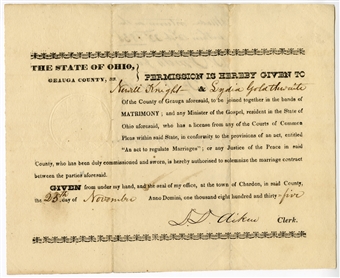 THE STATE OF OHIO,
GEAUGA COUNTY, ss
PERMISSION IS HEREBY GIVEN TO
Newell Knight & Lydia Goldthwaite
Of the County of Geauga aforesaid, to be joined together in the bands of
MATRIMONY; and any Minister of the Gospel, resident in the State of
Ohio aforesaid, who has a license from any of the Courts of Common
Pleas within said State, in conformity to the provisions of an act, entitled
"An act to regulate Marriages"; or any Justice of the Peace in said
County, who has been duly commissioned and sworn, is hereby authorised to solemnize the marriage contract
between the parties aforesaid.
GIVEN from under my hand, and the seal of my office, at the town of Chardon, in said County,
the 23th day of November Anno Domini, one thousand eight hundred and thirty-five
D. D. Aiken Clerk.